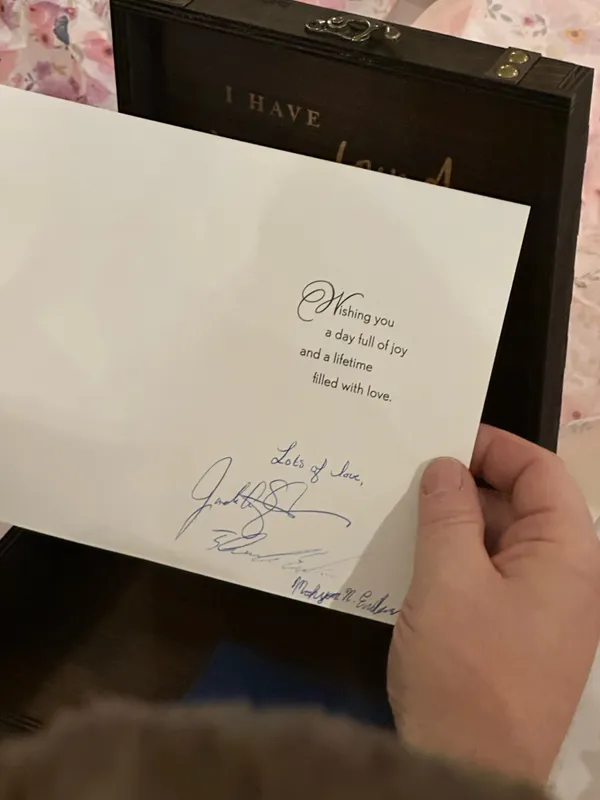 I HAVE
found
Wishing you
a day full of joy
and a lifetime
filled with love.
Lots of love,
N.